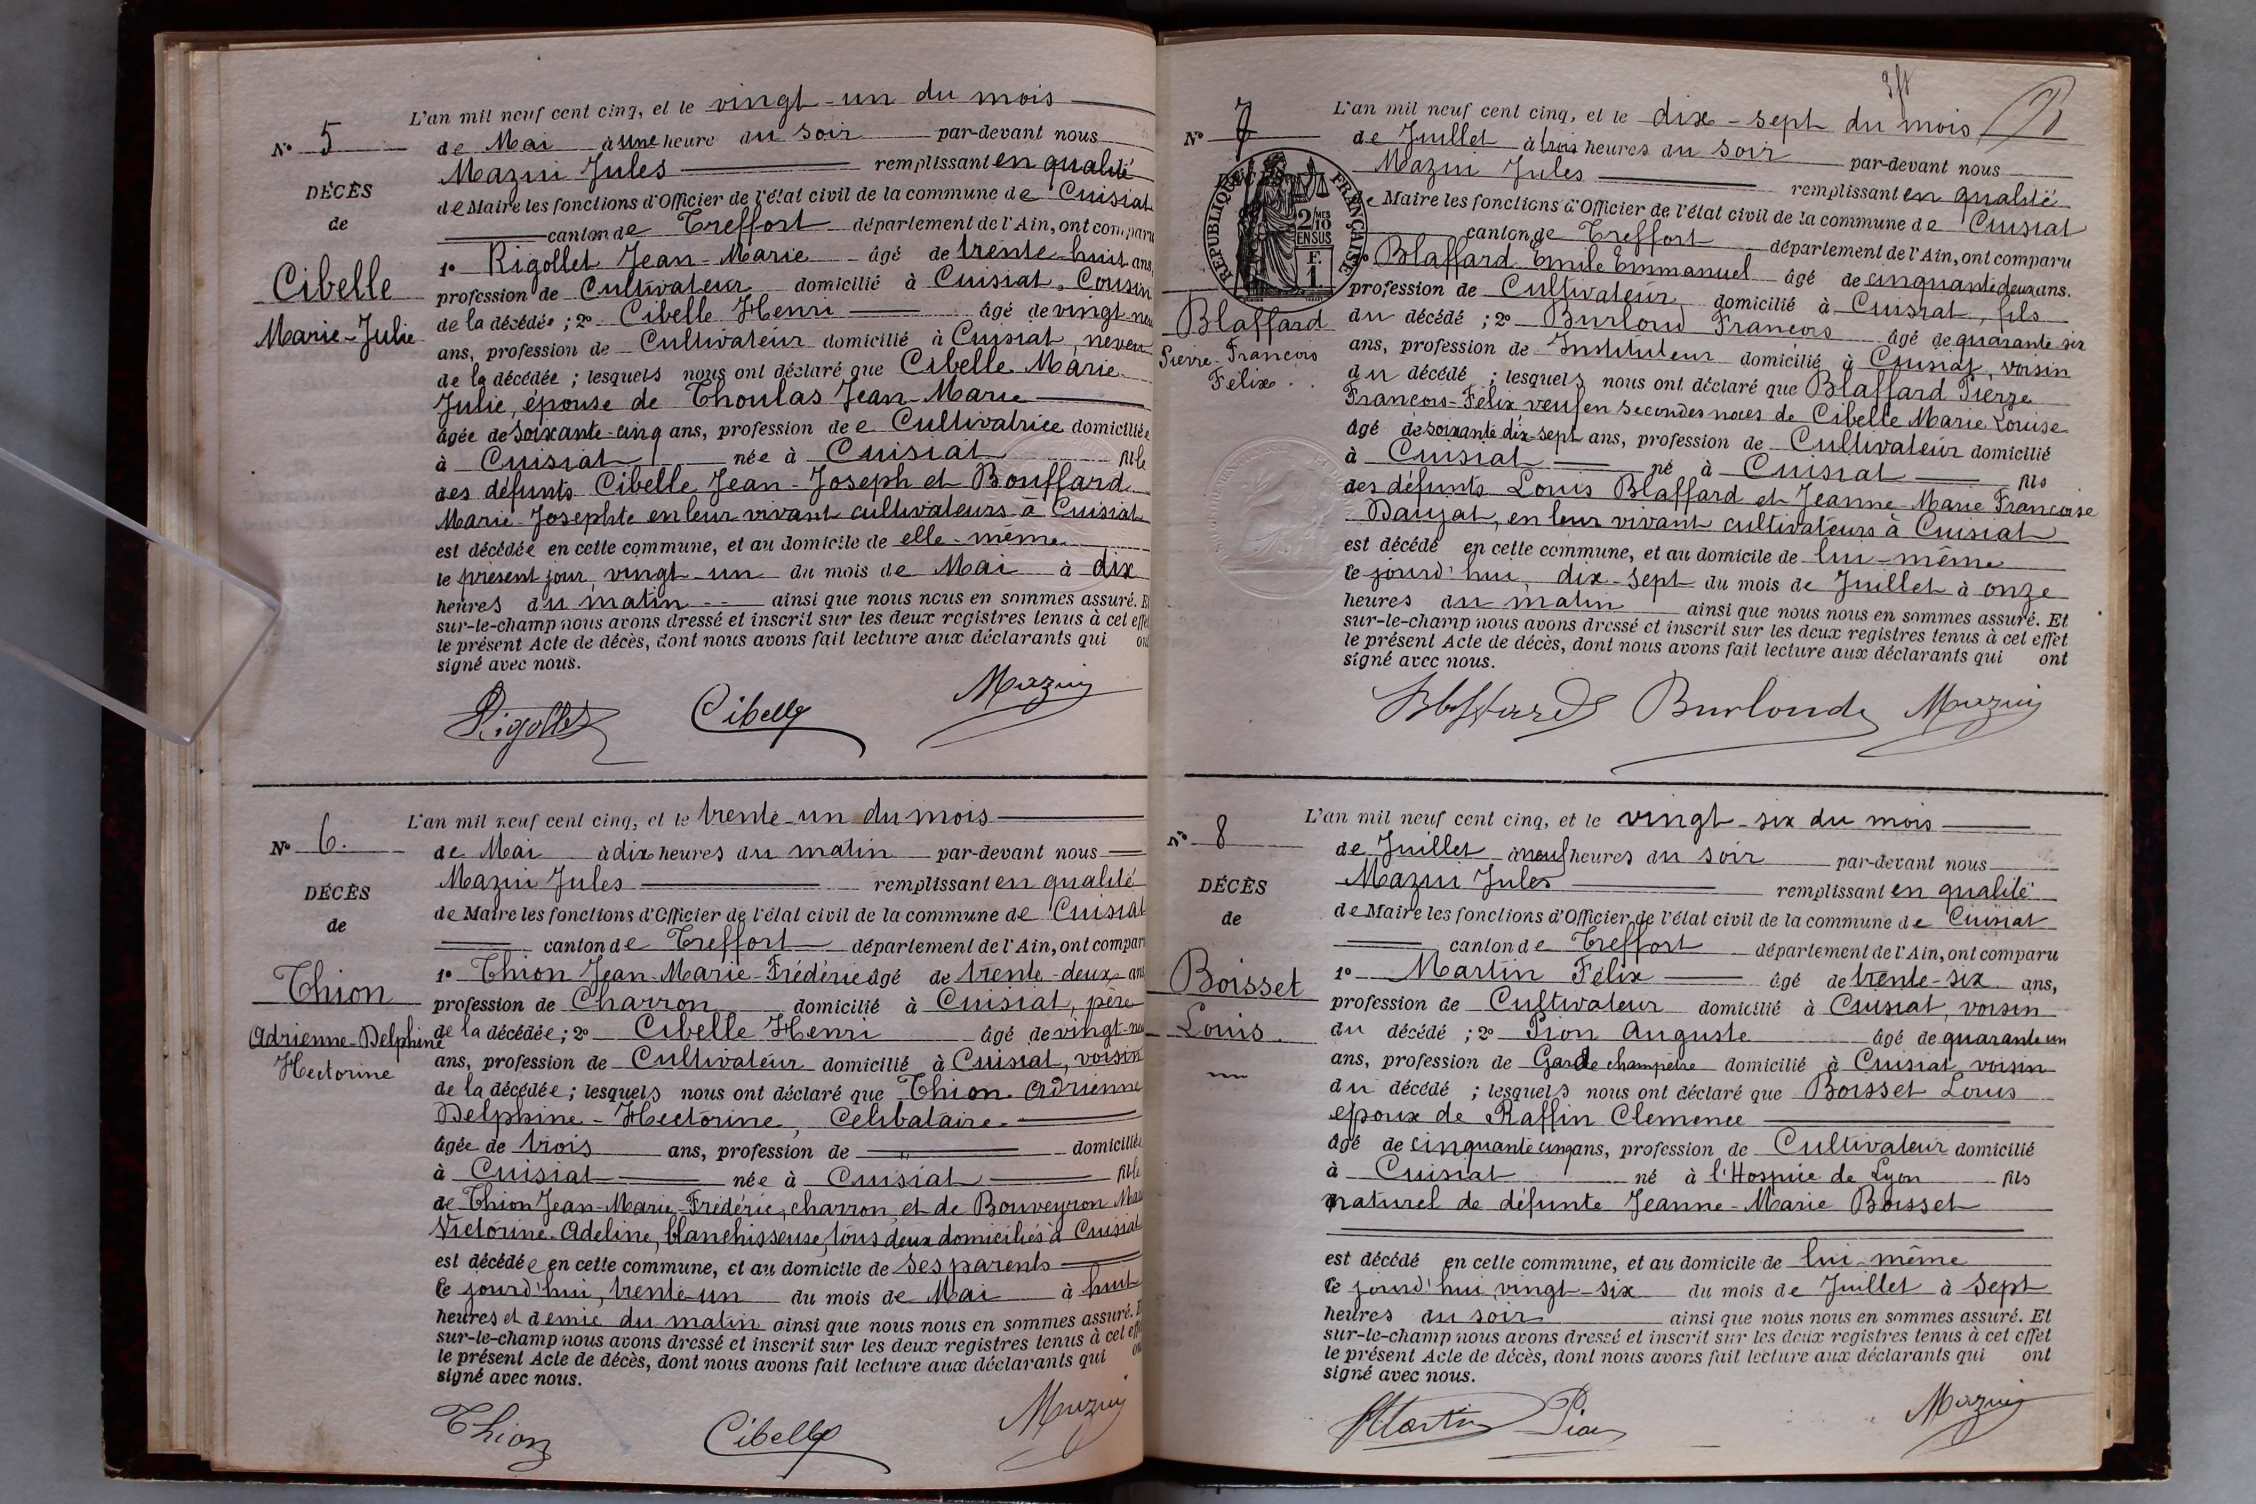 L'an mil neuf cent cinq, et le vingt-un du mois
N° 5
de Mai à une heure du soir par-devant nous
Mazui Jules remplissant en qualité
DÉCÈS
de Maire les fonctions d'Officier de l'état civil de la commune de Cuisiat
de
canton de Treffort département de l'Ain, ont comparu
1° Rigollet Jean-Marie âgé de trente-huit ans,
Cibelle
profession de Cultivateur domicilié à Cuisiat, Cousin
Marie-Julie
de la décédée ; 2° Cibelle Henri âgé de vingt-neu
ans, profession de Cultivateur domicilié à Cuisiat, neveu
de la décédée ; lesquels nous ont déclaré que Cibelle Marie
Julie, épouse de Thoulas Jean-Marie
âgée de soixante-cinq ans, profession de e Cultivatrice domiciliée
à Cuisiat née à Cuisiat fille
des défunts Cibelle Jean-Joseph et Bouffard
Marie-Josephte en leur vivant cultivateurs à Cuisiat
est décédée en cette commune, et au domicile de elle-même
le présent jour, vingt-un du mois de Mai à dix
heures du matin ainsi que nous nous en sommes assuré. Et
sur-le-champ nous avons dressé et inscrit sur les deux registres tenus à cet effet
le présent Acte de décès, dont nous avons fait lecture aux déclarants qui ont
signé avec nous.
Rigollet Cibelle Mazui
L'an mil neuf cent cinq, et le trente-un du mois
N° 6.
de Mai à dix heures du matin par-devant nous
Mazui Jules remplissant en qualité
DÉCÈS
de Maire les fonctions d'Officier de l'état civil de la commune de Cuisiat
de
canton de Treffort département de l'Ain, ont comparu
1° Thion Jean-Marie-Frédéric âgé de trente-deux ans
Thion
profession de Charron domicilié à Cuisiat, père
Adrienne-Delphine
de la décédée ; 2° Cibelle Henri âgé de vingt-neu
Hectorine
ans, profession de Cultivateur domicilié à Cuisiat, voisin
de la décédée ; lesquels nous ont déclaré que Thion Adrienne
Delphine-Hectorine, Célibataire
âgée de trois ans, profession de " domiciliée
à Cuisiat née à Cuisiat fille
de Thion Jean-Marie-Frédéric, charron et de Bouveyron Marie
Victorine-Adeline, blanchisseuse, tous deux domiciliés à Cuisiat
est décédée en cette commune, et au domicile de ses parents
le jourd'hui, trente-un du mois de Mai à huit
heures et demie du matin ainsi que nous nous en sommes assuré. E
sur-le-champ nous avons dressé et inscrit sur les deux registres tenus à cet effet
le présent Acte de décès, dont nous avons fait lecture aux déclarants qui on
signé avec nous.
Thion Cibelle Mazui
L'an mil neuf cent cinq, et le dix-sept du mois
N° 7
de Juillet à trois heures du soir par-devant nous
Mazui Jules remplissant en qualité
de Maire les fonctions d'Officier de l'état civil de la commune de Cuisiat
RÉPUBLIQUE FRANÇAISE
2 MES
10
EN SUS
F.
1
canton de Treffort département de l'Ain, ont comparu
1° Blaffard Emile Emmanuel âgé de cinquante deux ans.
profession de Cultivateur domicilié à Cuisiat, fils
Blaffard
du décédé ; 2° Burloud François âgé de quarante six
Pierre-François
ans, profession de Instituteur domicilié à Cuisiat, voisin
Félix
du décédé ; lesquels nous ont déclaré que Blaffard Pierre
François-Félix, veuf en secondes noces de Cibelle Marie Louise
âgé de soixante dix-sept ans, profession de Cultivateur domicilié
à Cuisiat né à Cuisiat fils
des défunts Louis Blaffard et Jeanne-Marie Françoise
Daujat, en leur vivant cultivateurs à Cuisiat
est décédé en cette commune, et au domicile de lui-même
le jourd'hui, dix-sept du mois de Juillet à onze
heures du matin ainsi que nous nous en sommes assuré. Et
sur-le-champ nous avons dressé et inscrit sur les deux registres tenus à cet effet
le présent Acte de décès, dont nous avons fait lecture aux déclarants qui ont
signé avec nous.
Blaffard Burloud Mazui
L'an mil neuf cent cinq, et le vingt-six du mois
N° 8
de Juillet à neuf heures du soir par-devant nous
Mazui Jules remplissant en qualité
DÉCÈS
de Maire les fonctions d'Officier de l'état civil de la commune de Cuisiat
de
canton de Treffort département de l'Ain, ont comparu
Boisset
1° Martin Félix âgé de trente-six ans,
profession de Cultivateur domicilié à Cuisiat, voisin
Louis
du décédé ; 2° Pion Auguste âgé de quarante un
ans, profession de Garde champêtre domicilié à Cuisiat voisin
du décédé ; lesquels nous ont déclaré que Boisset Louis
époux de Raffin Clemence
âgé de cinquante cinq ans, profession de Cultivateur domicilié
à Cuisiat né à l'Hospice de Lyon fils
naturel de défunte Jeanne-Marie Boisset
est décédé en cette commune, et au domicile de lui-même
le jourd'hui vingt-six du mois de Juillet à sept
heures du soir ainsi que nous nous en sommes assuré. Et
sur-le-champ nous avons dressé et inscrit sur les deux registres tenus à cet effet
le présent Acte de décès, dont nous avons fait lecture aux déclarants qui ont
signé avec nous.
Martin Pion Mazui